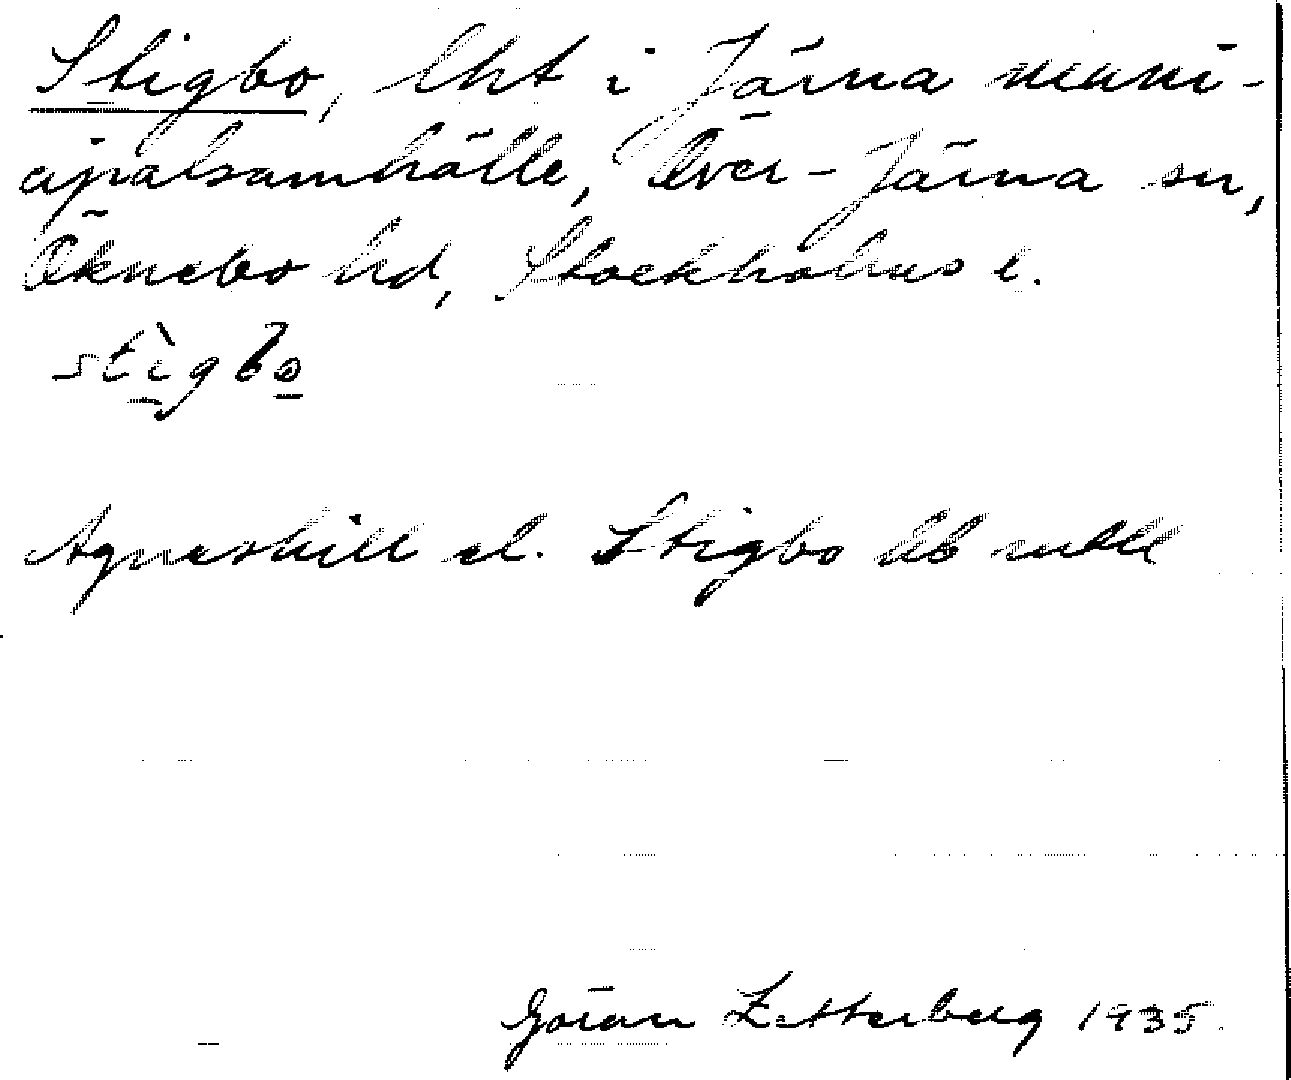 Stigbo, lht i Järna muni-
cipalsamhälle, Över-Järna sn,
Öknebo hd, Stockholms l.
stìgbo
Agneshill el. Stigbo
Göran Zetterberg 1935.